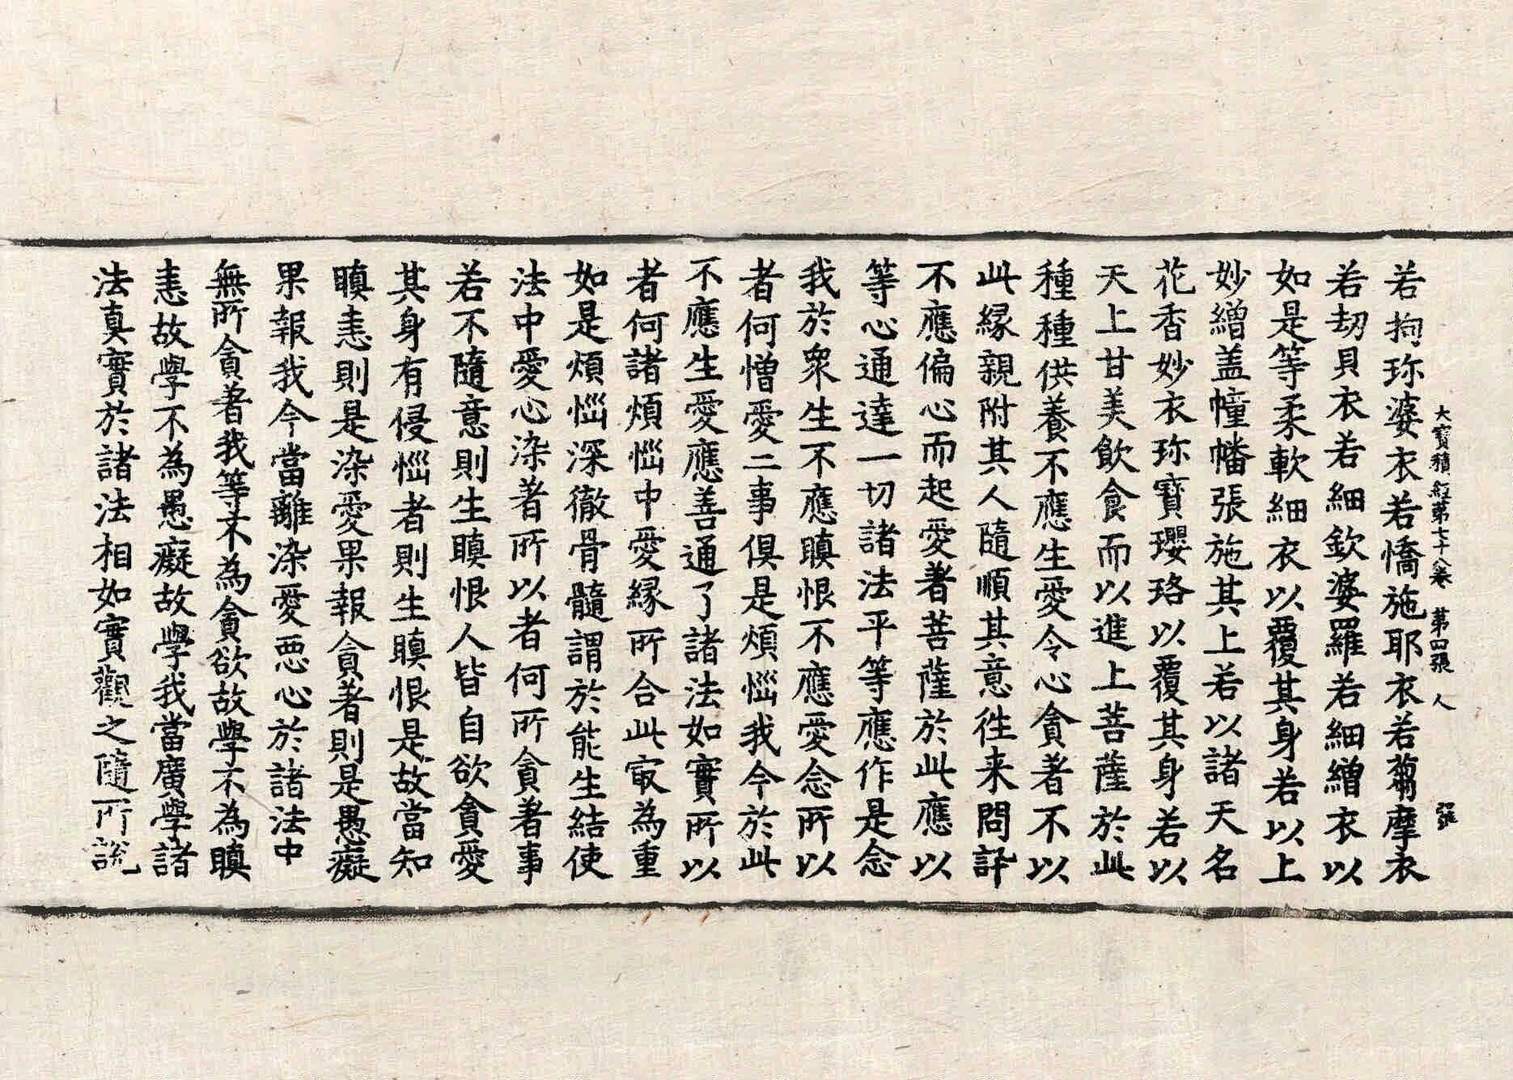 大寶積經第七十八卷 第四張 人
若拘珎婆衣若憍施耶衣若芻摩衣
若刧貝衣若細欽婆羅衣若細繒衣以
如是等柔軟細衣以覆其身若以上
妙繒盖幢幡張施其上若以諸天名
花香妙衣珎寶瓔珞以覆其身若以
天上甘美飲食而以進上菩薩於此
種種供養不應生愛令心貪著不以
此縁親附其人隨順其意往来問訊
不應偏心而起愛著菩薩於此應以
等心通達一切諸法平等應作是念
我於衆生不應瞋恨不應愛念所以
者何憎愛二事俱是煩惱我今於此
不應生愛應善通了諸法如實所以
者何諸煩惱中愛縁所合此㝡為重
如是煩惱深徹骨髓謂於能生結使
法中愛心染著所以者何所貪著事
若不隨意則生瞋恨人皆自欲貪愛
其身有侵惱者則生瞋恨是故當知
瞋恚則是染愛果報貪著則是愚癡
果報我今當離染愛恶心於諸法中
無所貪著我等不為貪欲故學不為瞋
恚故學不為愚癡故學我當廣學諸
法真實於諸法相如實觀之隨所說